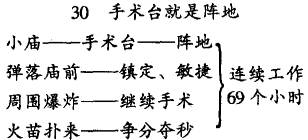 30 手术台就是阵地
小庙——手术台——阵地
弹落庙前——镇定、敏捷
周围爆炸——继续手术
火苗扑来——争分夺秒
连续工作
69个小时